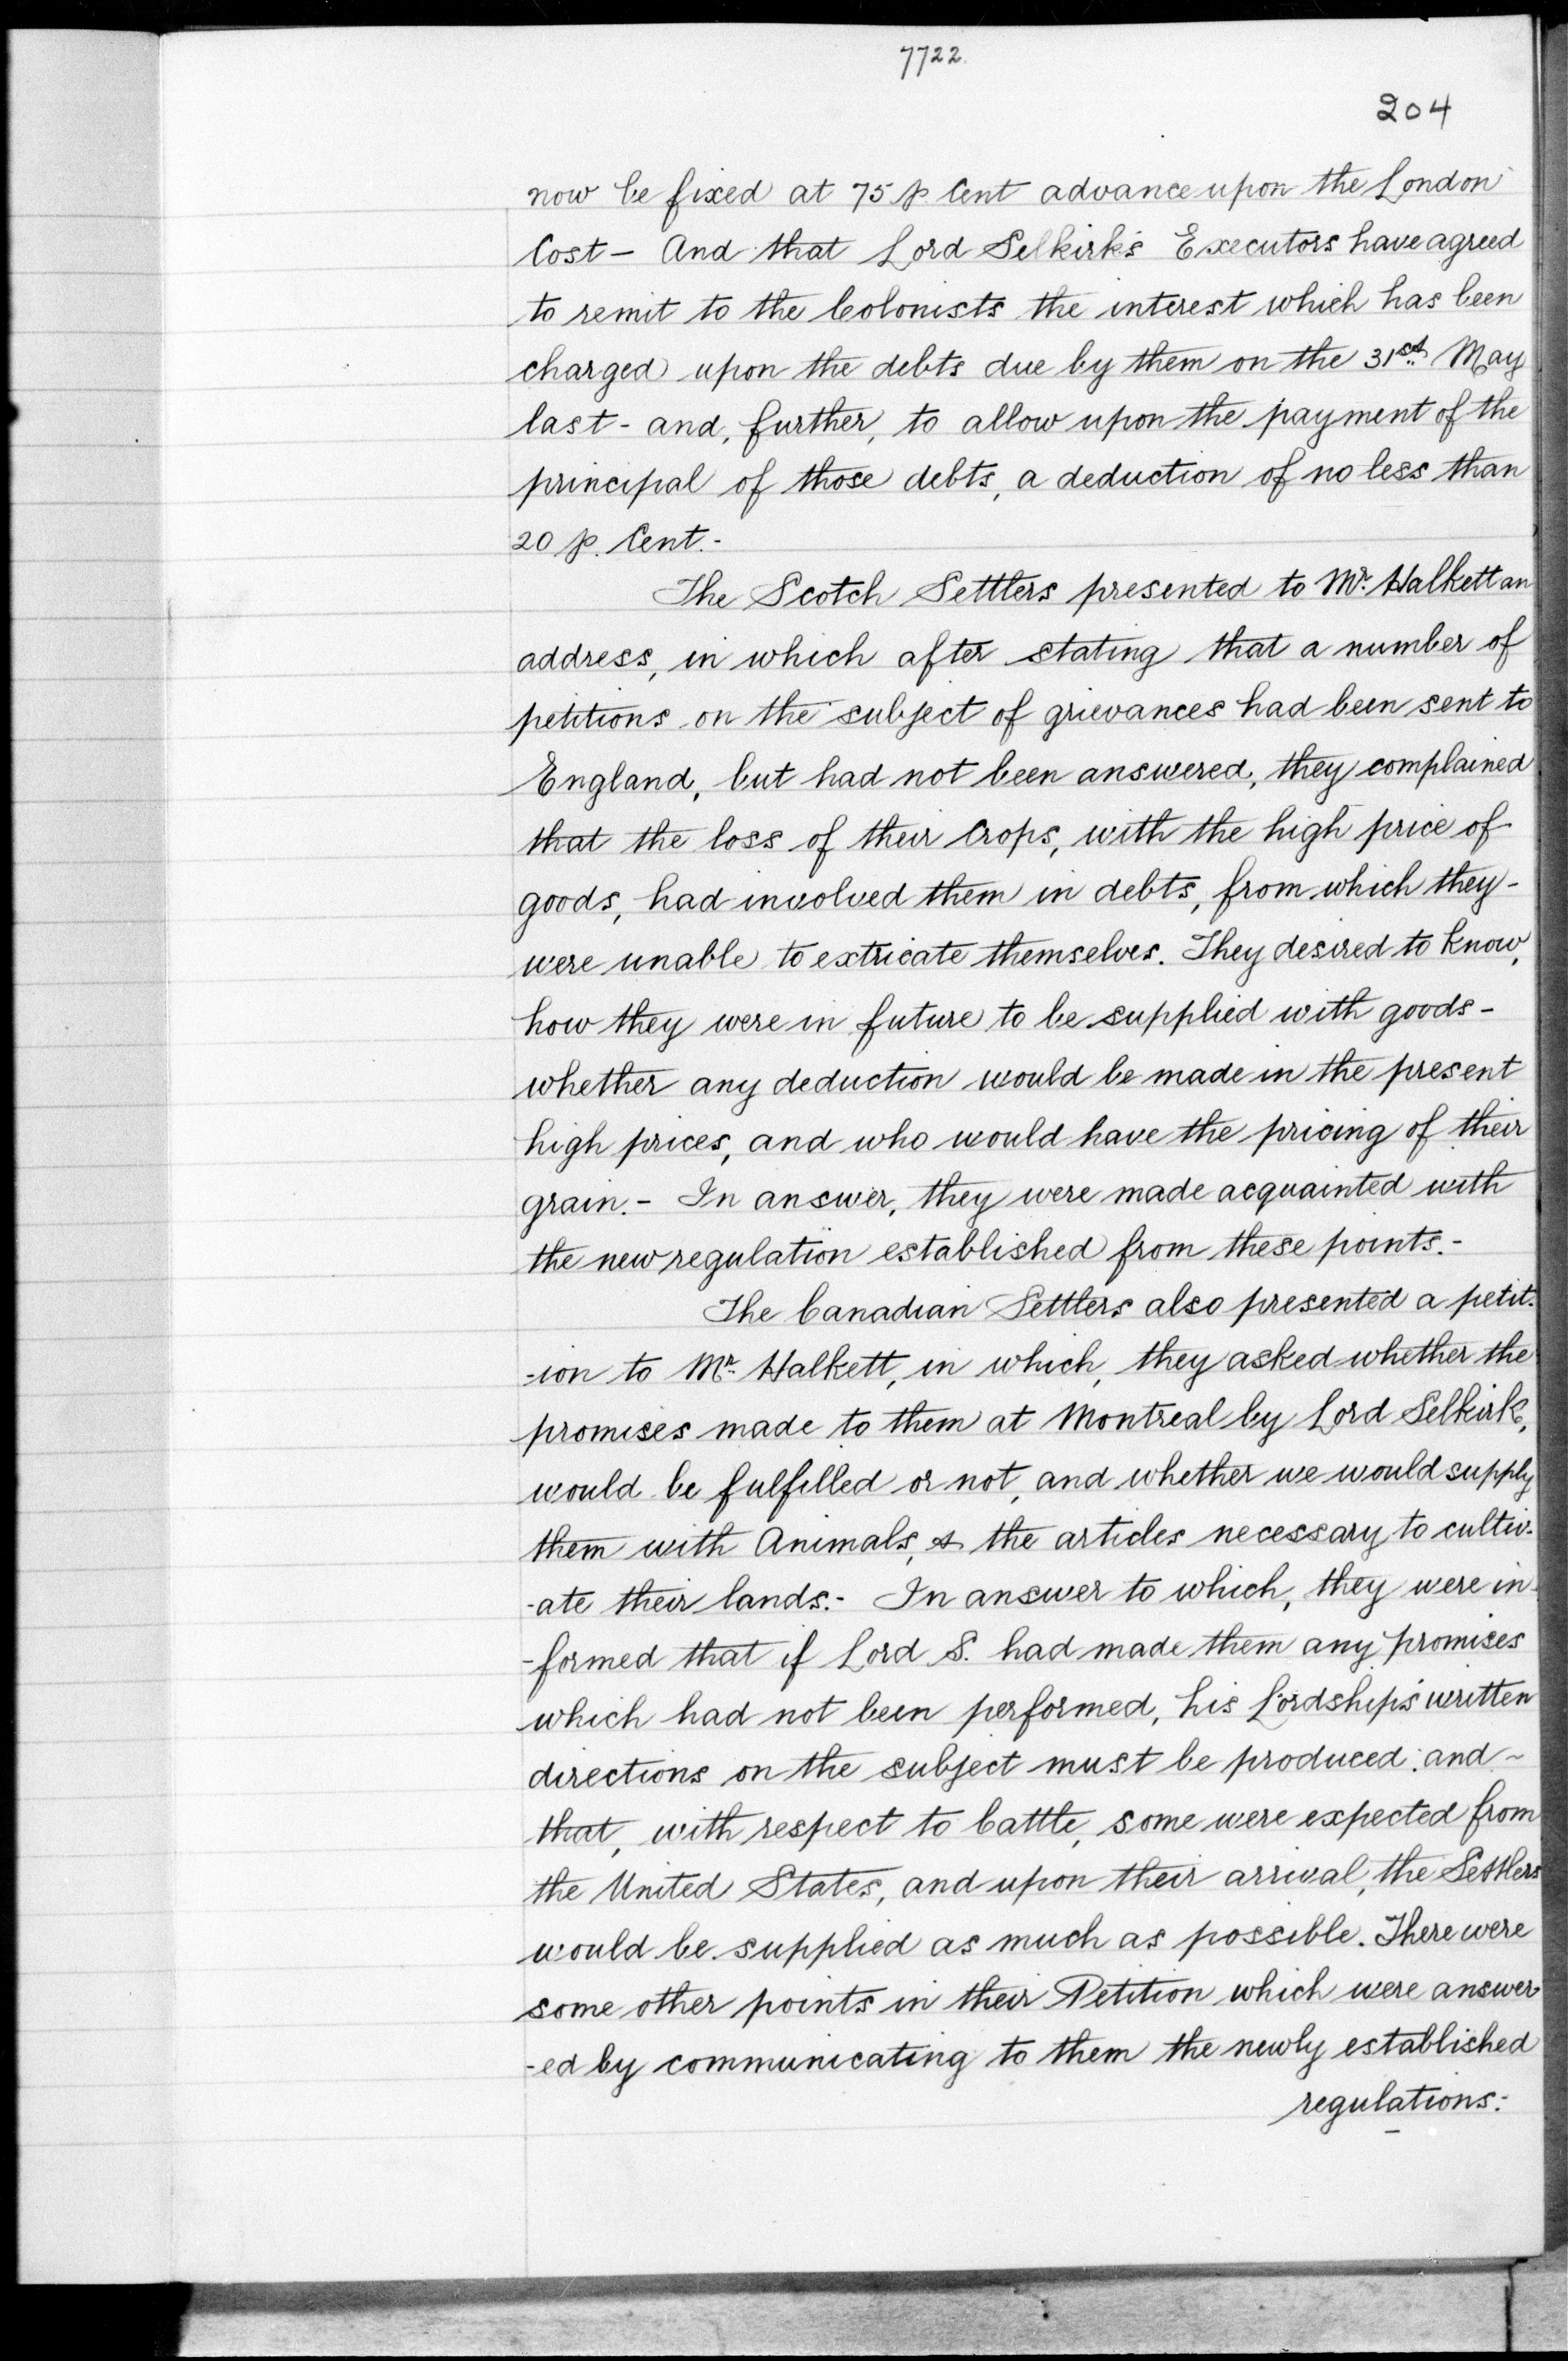 7722.
204
now be fixed at 75 p. Cent advance upon the London
Cost - And that Lord Selkirk's Executors have agreed
to remit to the Colonists the interest which has been
charged upon the debts due by them on the 31st May
last - and, further, to allow upon the payment of the
principal of those debts, a deduction of no less than
20 p. Cent.-
The Scotch Settlers presented to Mr. Halkett an
address, in which after stating that a number of
petitions on the subject of grievances had been sent to
England, but had not been answered, they complained
that the loss of their Crops, with the high price of
goods, had involved them in debts, from which they -
were unable to extricate themselves. They desired to know,
how they were in future to be supplied with goods -
whether any deduction would be made in the present
high prices, and who would have the pricing of their
grain. - In answer, they were made acquainted with
the new regulation established from these points.-
The Canadian Settlers also presented a petit-
-ion to Mr. Halkett, in which, they asked whether the
promises made to them at Montreal by Lord Selkirk,
would be fulfilled or not, and whether we would supply
them with Animals, & the articles necessary to cultiv-
-ate their lands.- In answer to which, they were in-
-formed that if Lord S. had made them any promises
which had not been performed, his Lordship's written
directions on the subject must be produced: and ~
that, with respect to Cattle, some were expected from
the United States, and upon their arrival, the Settlers
would be supplied as much as possible. There were
some other points in their Petition which were answer-
-ed by communicating to them the newly established
regulations: